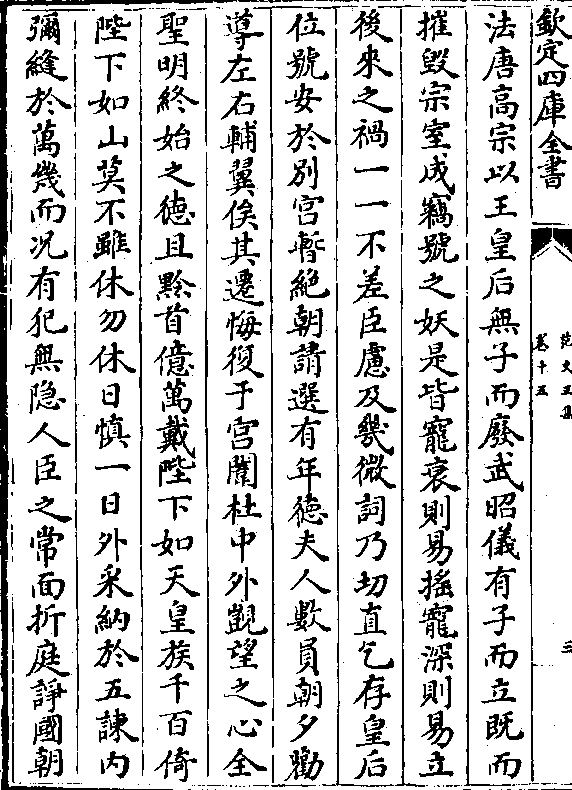 欽定四庫全書
范文正集
卷十五
三
法唐高宗以王皇后無子而廢武昭儀有子而立既而
摧毀宗室成竊號之妖是皆寵衰則易搖寵深則易立
後來之禍一一不差臣慮及幾微詞乃切直乞存皇后
位號安於別宮暫絕朝請選有年德夫人數員朝夕勸
導左右輔翼俟其遷悔復于宮闈杜中外覬望之心全
聖明終始之德且黔首億萬戴陛下如天皇族千百倚
陛下如山莫不雖休勿休日慎一日外采納於五諫内
彌縫於萬幾而況有犯無隱人臣之常面折庭諍國朝